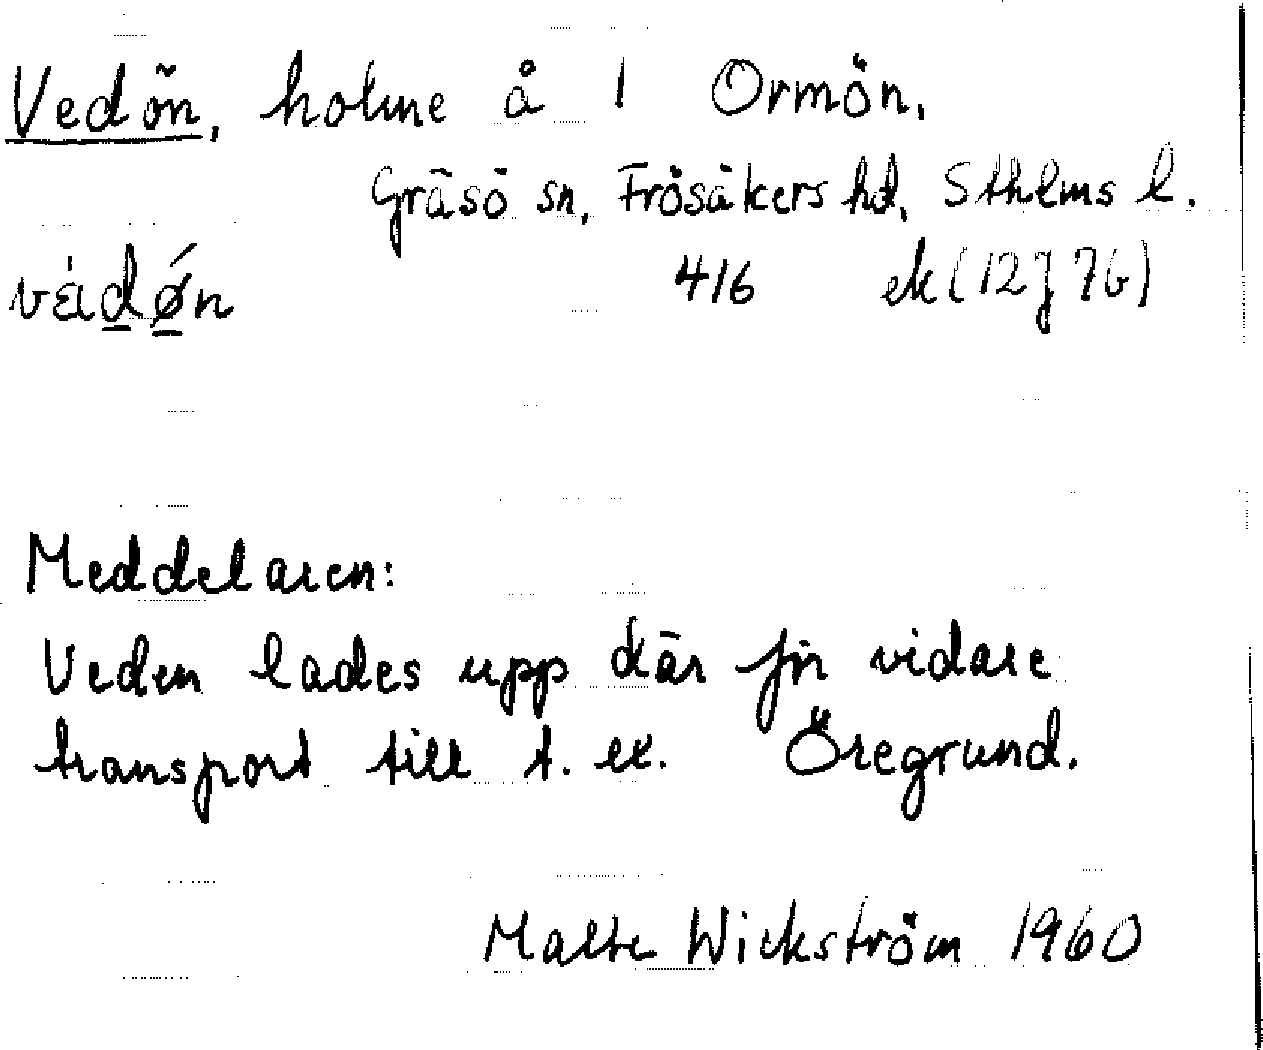 Vedön, holme å 1 Ormön.
Gräsö sn, Frösåkers hd, Sthlms l.
véidǿn 416 ek (12J7b)
Meddelaren:
Veden lades upp där för vidare
transport till t. ex. Öregrund.
Malte Wickström 1960